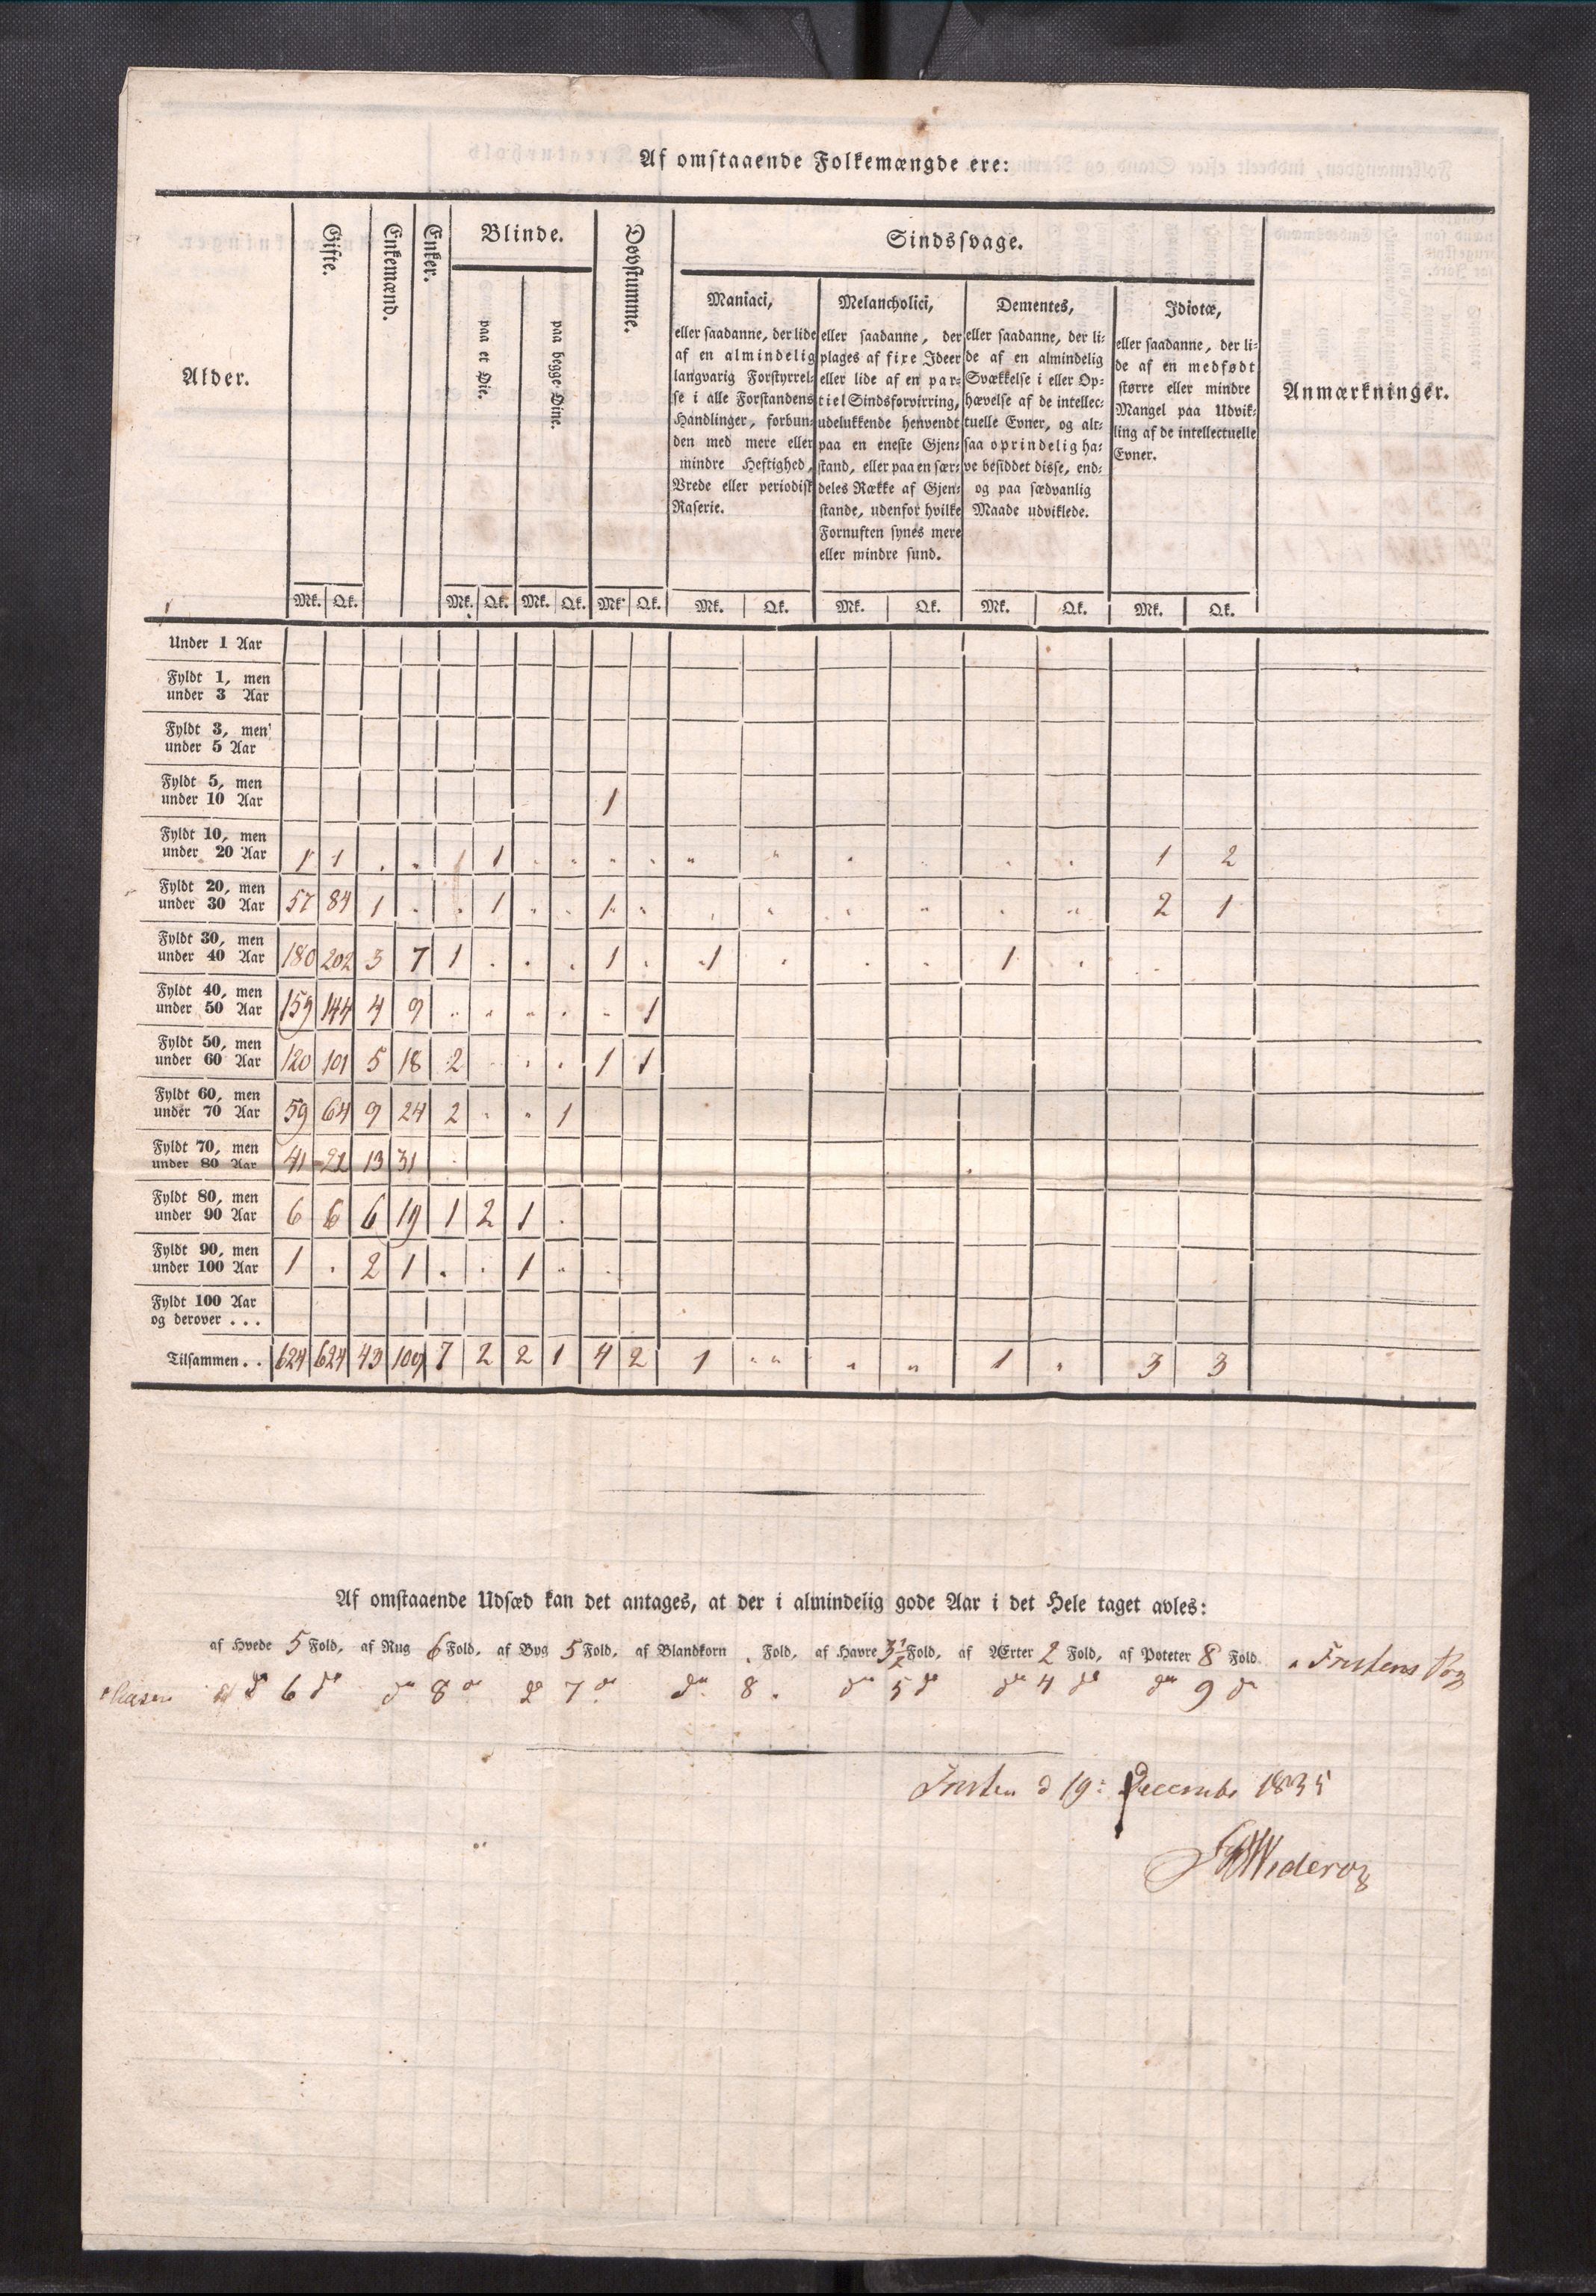 Af omstaaende Folkemængde ere:
Alder.
Gifte.
Enkemænd.
Enker.
Blinde.
paa et Øie.
paa begge Øine.
Døvstumme.
Sindssvage.
Maniaci,
eller saadanne, der lide
af en almindelig
langvarig Forstyrrel-
se i alle Forstandens
Handlinger, forbun-
den med mere eller
mindre Heftighed,
Vrede eller periodisk
Raserie.
Melancholici,
eller saadanne, der
plages af fixe Ideer
eller lide af en par-
tiel Sindsforvirring,
udelukkende henvendt
paa en eneste Gjen-
stand, eller paa en sær-
deles Række af Gjen-
stande, udenfor hvilke
Fornuften synes mere
eller mindre sund.
Dementes,
eller saadanne, der li-
de af en almindelig
Svækkelse i eller Op-
hævelse af de intellec-
tuelle Evner, og alt-
saa oprindelig ha-
ve besiddet disse, end-
og paa sædvanlig
Maade udviklede.
Idiotæ,
eller saadanne, der li-
de af en medfødt
større eller mindre
Mangel paa Udvik-
ling af de intellectuelle
Evner.
Anmærkninger.
Mk. Qk. Mk. Qk. Mk. Qk. Mk. Qk. Mk. Qk. Mk. Qk. Mk. Qk. Mk. Qk.
Under 1 Aar
Fyldt 1, men
under 3 Aar
Fyldt 3, men
under 5 Aar
Fyldt 5, men
under 10 Aar 1
Fyldt 10, men
under 20 Aar 1 1 . " 1 1 " " " " " " " " " " 1 2
Fyldt 20, men
under 30 Aar 57 84 1 " " 1 " " 1 " " " " " " " 2 1
Fyldt 30, men
under 40 Aar 180 202 3 7 1 . . . 1 . 1 " . . 1 .
Fyldt 40, men
under 50 Aar 159 144 4 9 " " " " " 1
Fyldt 50, men
under 60 Aar 120 101 5 18 2 . . . 1 1
Fyldt 60, men
under 70 Aar 59 64 9 24 2 " " 1
Fyldt 70, men
under 80 Aar 41 22 13 31
Fyldt 80, men
under 90 Aar 6 6 6 19 1 2 1 .
Fyldt 90, men
under 100 Aar 1 . 2 1 . . 1 "
Fyldt 100 Aar
og derover . . .
Tilsammen . . 624 624 43 109 7 2 2 1 4 2 1 " " " " 1 " 3 3
Af omstaaende Udsæd kan det antages, at der i almindelig gode Aar i det Hele taget avles:
af Hvede 5 Fold, af Rug 6 Fold, af Byg 5 Fold, af Blandkorn . Fold, af Havre 3 1/2 Fold, af Ærter 2 Fold, af Poteter 8 Fold
do 6 do do 8 do do 7 do do 8 . do 5 do do 4 do do 9 do
d 19: Decembr 1835